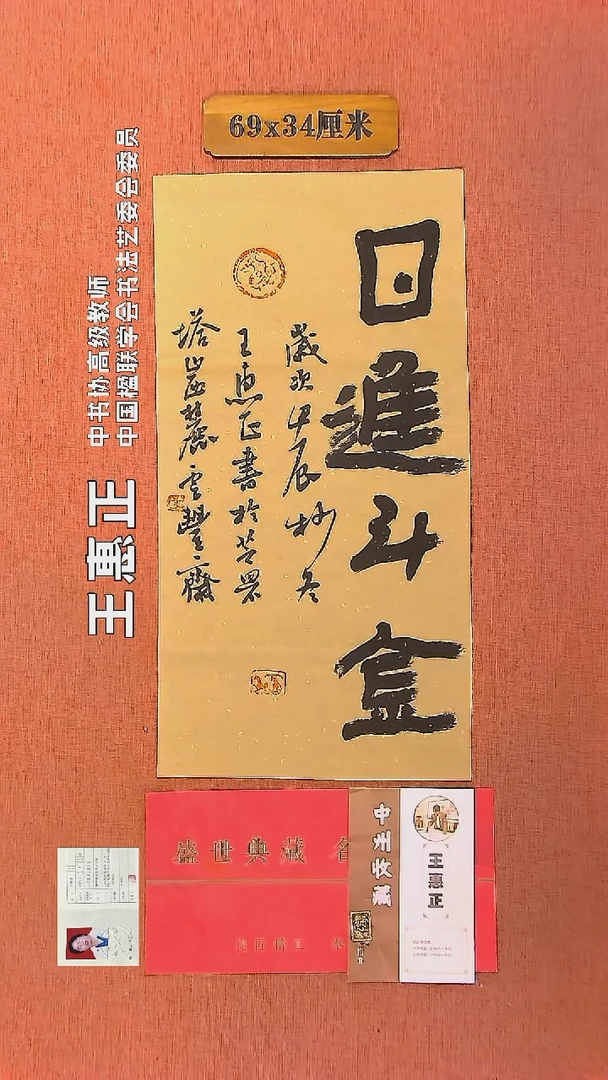 69x34厘米
日進斗金
歲次甲辰杪冬
王惠正書於莒界
塔山区桃麓雲豐齋
王惠正
中书协高级教师
中国楹联学会书法艺委会委员
盛世典藏 名
中州收藏
王惠正